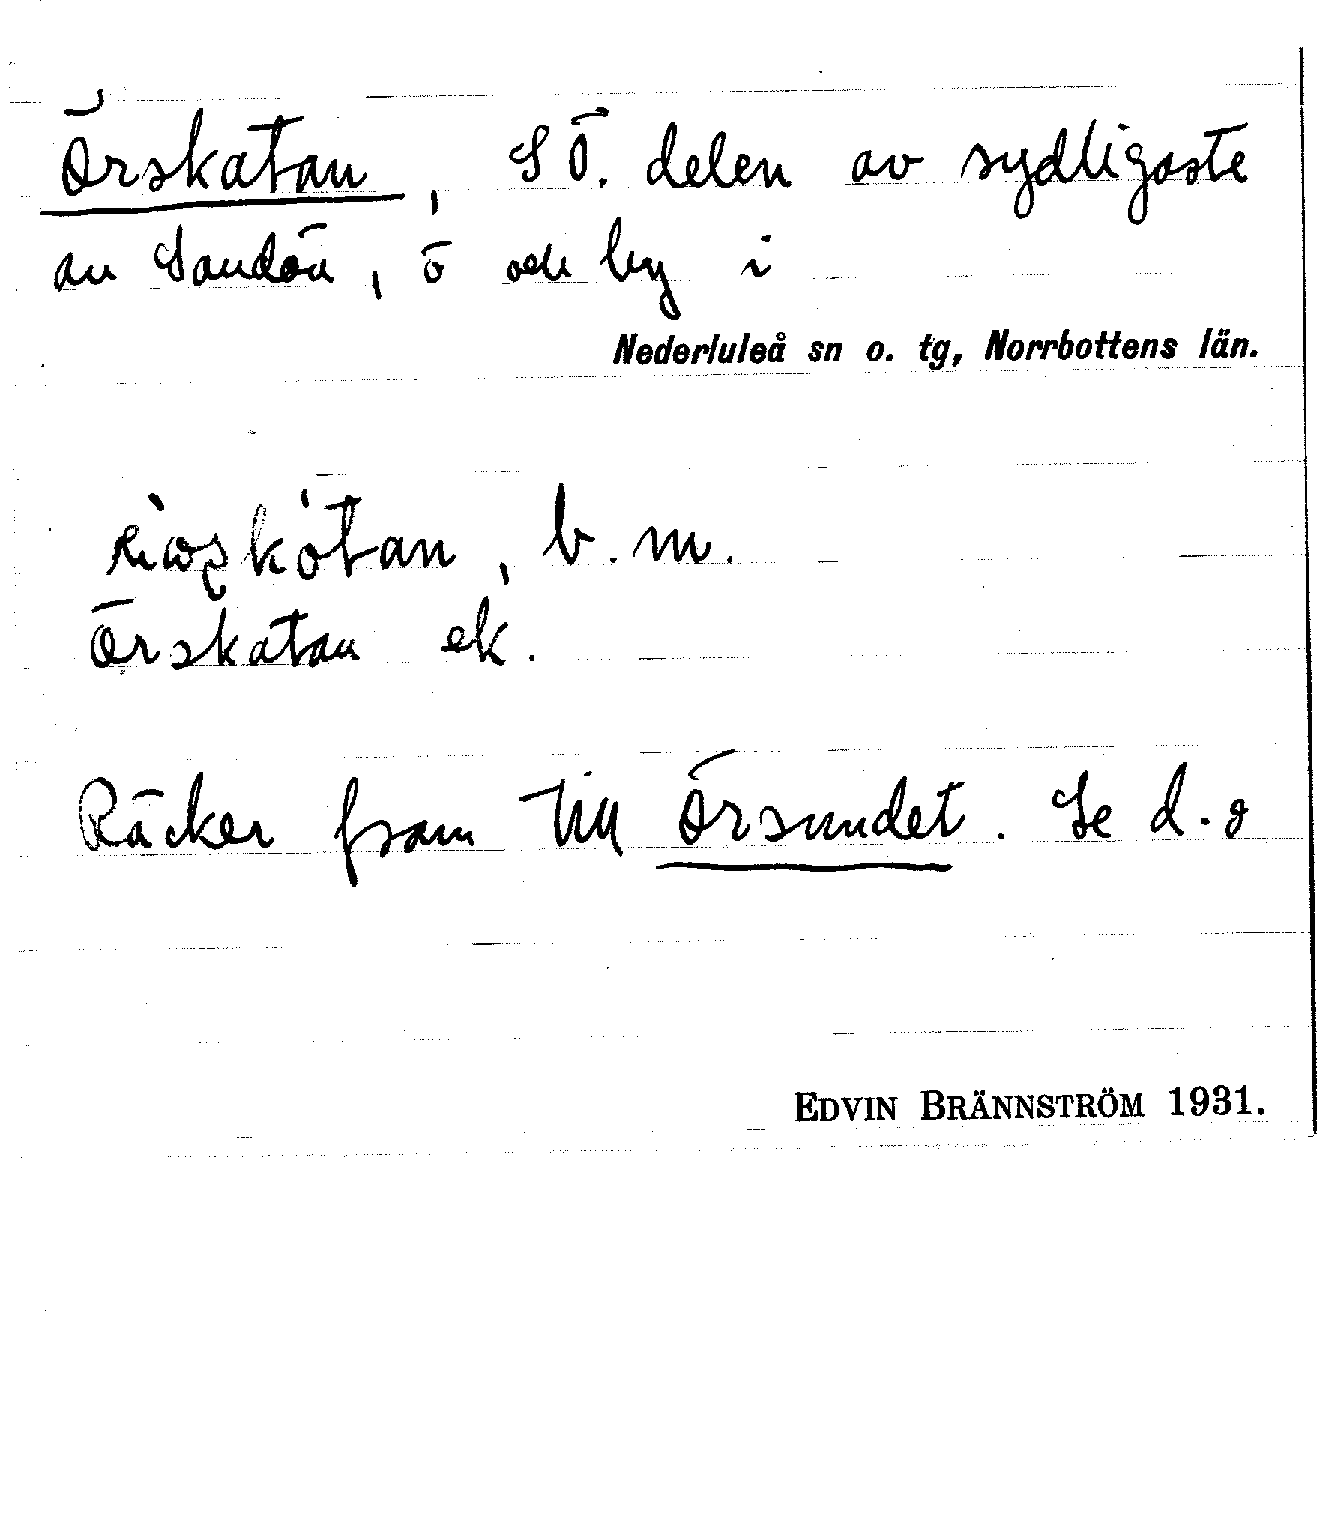 Örskatan, SÖ. delen av sydligaste
an Sandön, ö och by i
Nederluleå sn o. tg, Norrbottens län.
b. m.
Örskatan ek.
Räcker fram till Örsundet. Se d. o
EDVIN BRÄNNSTRÖM 1931.